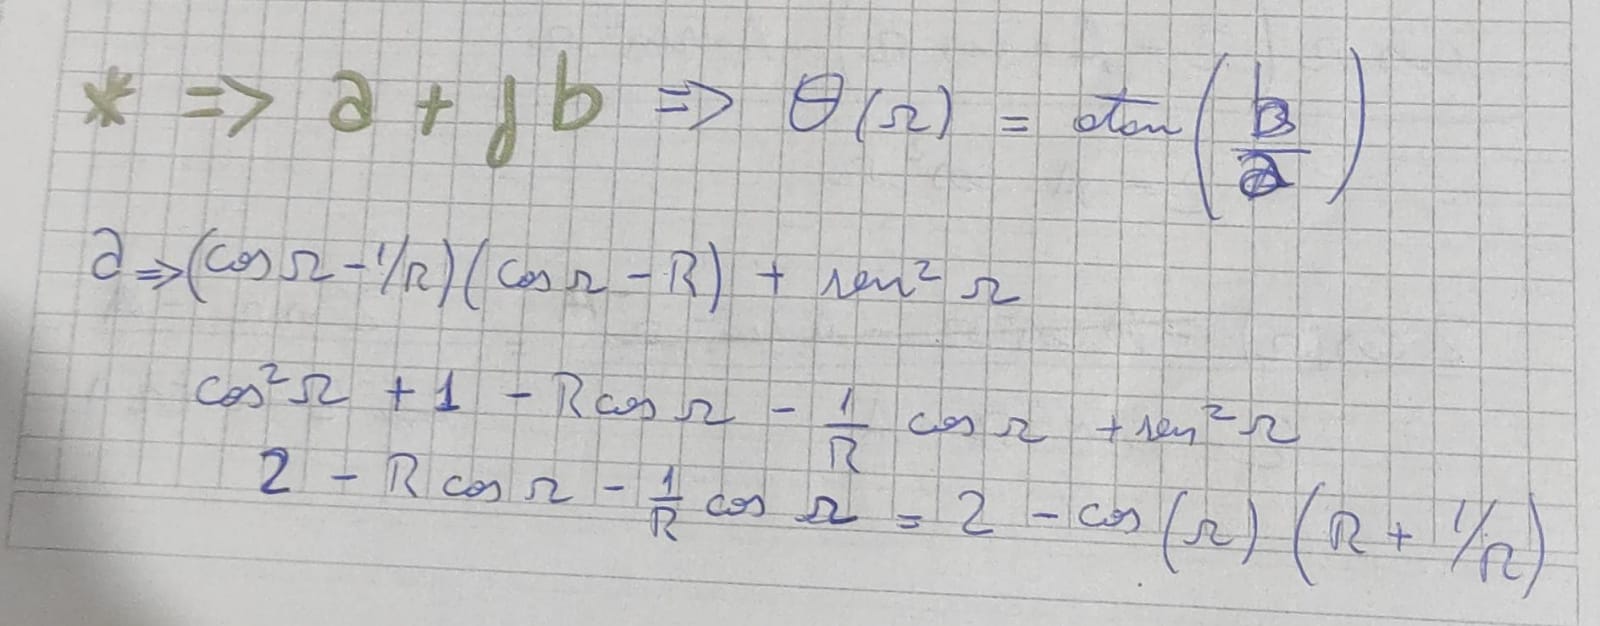 * => a + jb => θ(Ω) = atan(b/a)
a => (cos Ω - 1/R)(cos Ω - R) + sen² Ω
cos² Ω + 1 - R cos Ω - 1/R cos Ω + sen² Ω
2 - R cos Ω - 1/R cos Ω = 2 - cos(Ω) (R + 1/R)